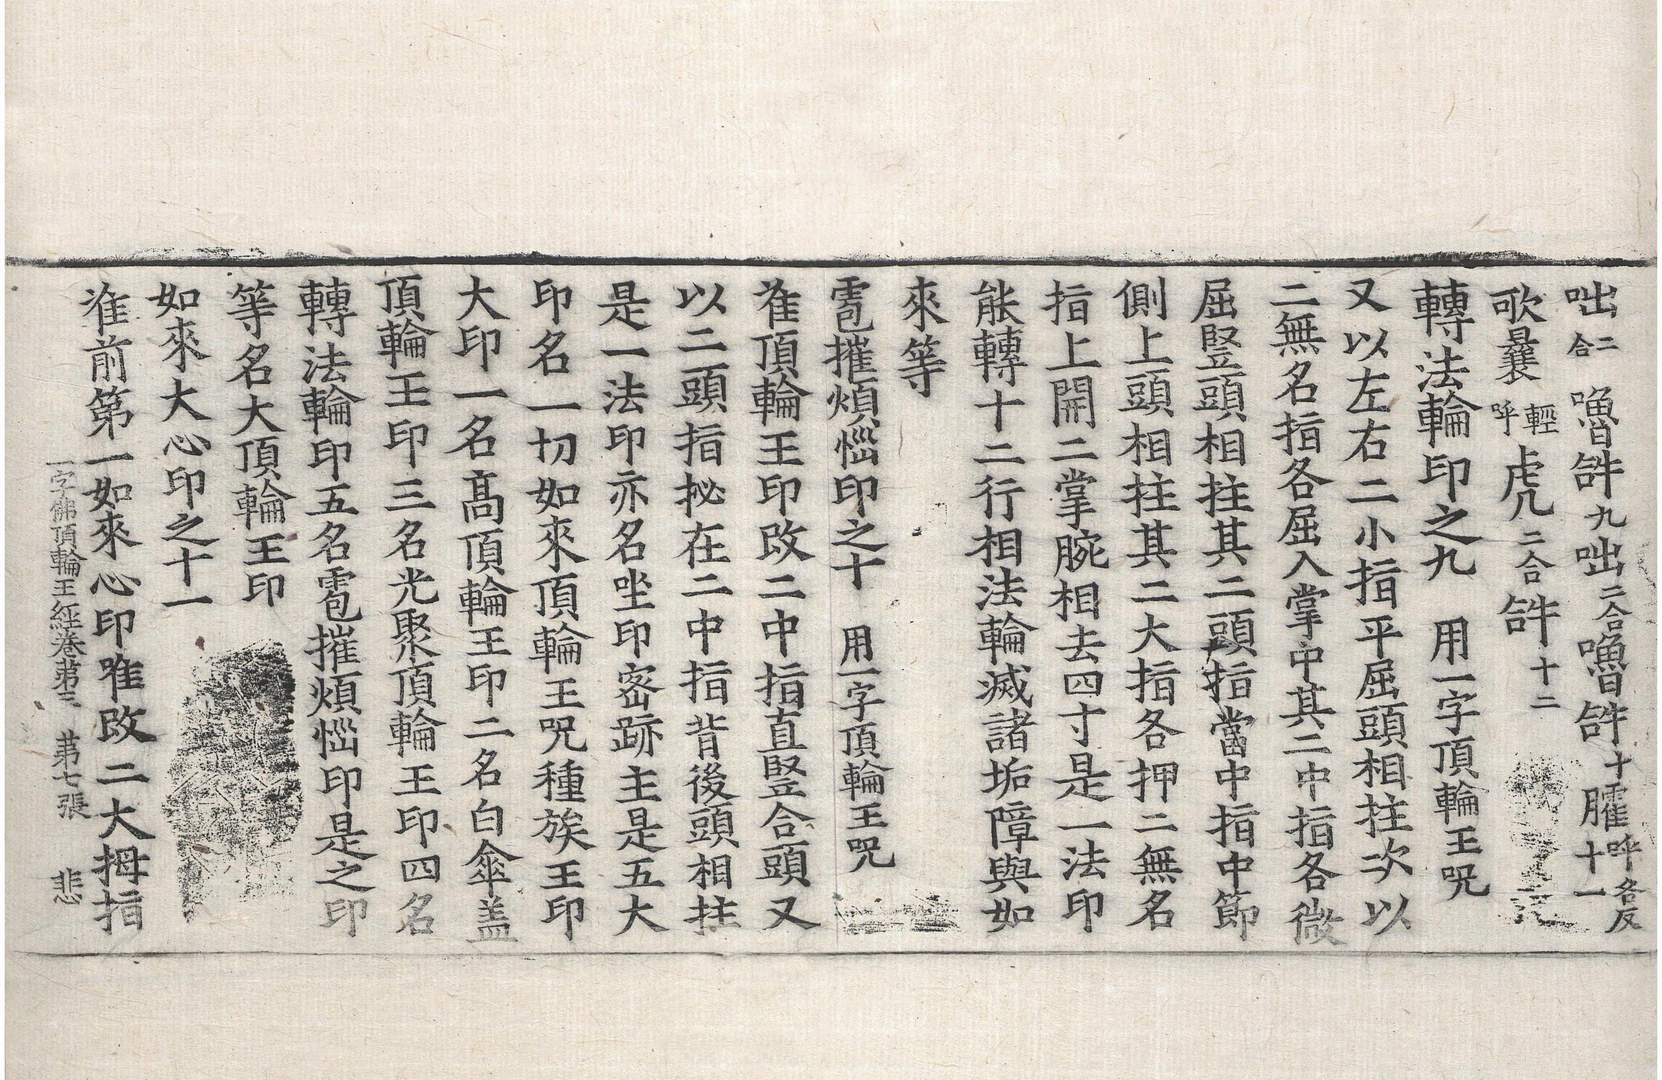 咄二合嚕𤙖九咄二合嚕𤙖十臛呼各反十一
歌曩輕呼虎二合𤙖十二
轉法輪印之九　用一字頂輪王呪
又以左右二小指平屈頭相拄次以
二無名指各屈入掌中其二中指各微
屈竪頭相拄其二頭指當中指中節
側上頭相拄其二大指各押二無名
指上開二掌腕相去四寸是一法印
能轉十二行相法輪滅諸垢障與如
來等
雹摧煩惱印之十　用一字頂輪王呪
准頂輪王印改二中指直竪合頭又
以二頭指拟在二中指背後頭相拄
是一法印亦名坐印密跡主是五大
印名一切如來頂輪王呪種族王印
大印一名髙頂輪王印二名白傘盖
頂輪王印三名光聚頂輪王印四名
轉法輪印五名雹摧煩惱印是之印
等名大頂輪王印
如來大心印之十一
一字佛頂輪王經卷第三　第七張　悲
准前第一如來心印唯改二大拇指